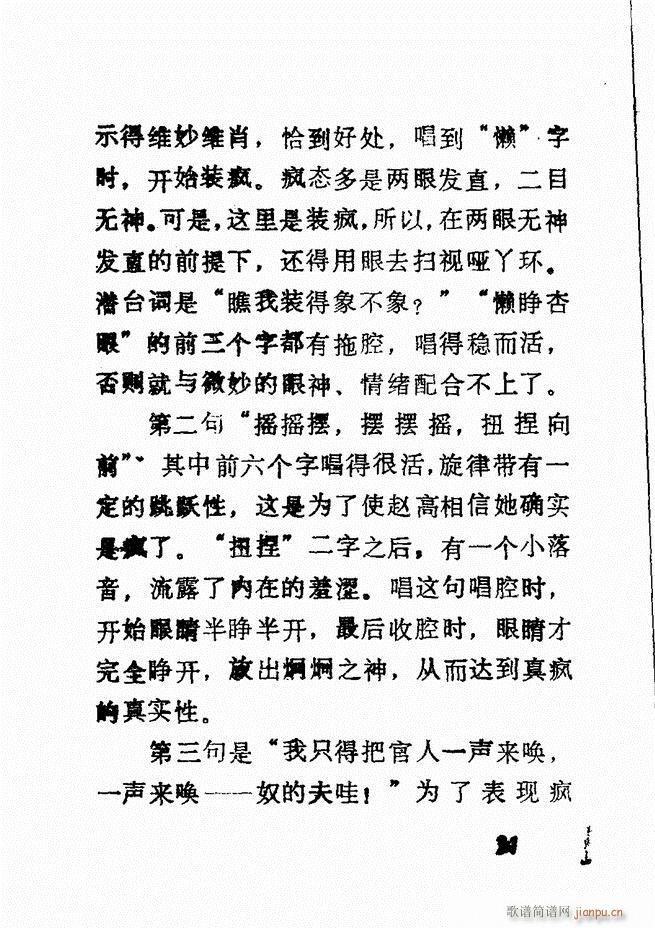 示得维妙维肖，恰到好处，唱到“懒”字
时，开始装疯。疯态多是两眼发直，二目
无神。可是，这里是装疯，所以，在两眼无神
发直的前提下，还得用眼去扫视哑丫环。
潜台词是“瞧我装得象不象？”“懒睁杏
眼”的前三个字都有拖腔，唱得稳而活，
否则就与微妙的眼神、情绪配合不上了。
第二句“摇摇摆，摆摆摇，扭捏向
前”。其中前六个字唱得很活，旋律带有一
定的跳跃性，这是为了使赵高相信她确实
是疯了。“扭捏”二字之后，有一个小落
音，流露了内在的羞涩。唱这句唱腔时，
开始眼睛半睁半开，最后收腔时，眼睛才
完全睁开，放出炯炯之神，从而达到真疯
的真实性。
第三句是“我只得把官人一声来唤，
一声来唤——奴的夫哇！”为了表现疯
歌谱简谱网 jianpu.cn